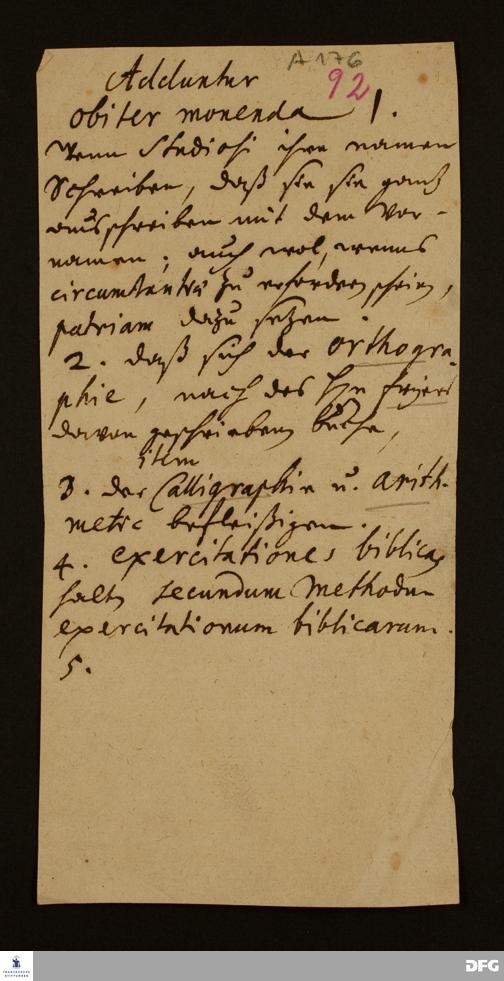 A 176
92
Adduntur
obiter monenda 1.
Wenn Studiosi ihre namen
Schreiben, daß sie sie gantz
ausschreiben mit dem Vor-
namen; auch wol, wenns
circumstantiae zu erfordern schein,
patriam dazu setzen.
2. daß sich der orthogra-
phie, nach des Hn Freyers
davon geschriebenen buche,
item
3. der Calligraphie u. arith-
metic befleißigen.
4. exercitationes biblicas
halten secundum Methodum
exercitationum biblicarum.
5.
FRANCKESCHE
STIFTUNGEN
DFG